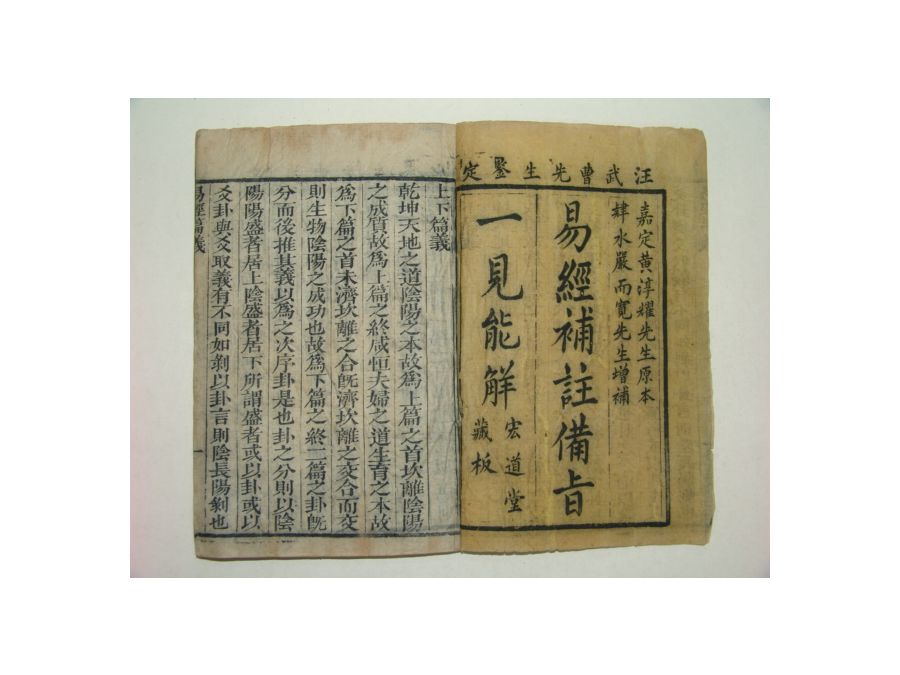 汪武曹先生鑒定
嘉定黃淳耀先生原本
肆水嚴而寬先生增補
易經補註備旨
一見能觧
宏道堂
藏板
上下篇義
乾坤天地之道陰陽之本故爲上篇之首坎離陰陽
之成質故爲上篇之終咸恒夫婦之道生育之本故
爲下篇之首未濟坎離之合旣濟坎離之交合而交
則生物陰陽之成功也故爲下篇之終二篇之卦旣
分而後推其義以爲之次序卦是也卦之分則以陰
陽陽盛者居上陰盛者居下所謂盛者或以卦或以
爻卦與爻取義有不同如剝以卦言則陰長陽剝也
易經篇義
一